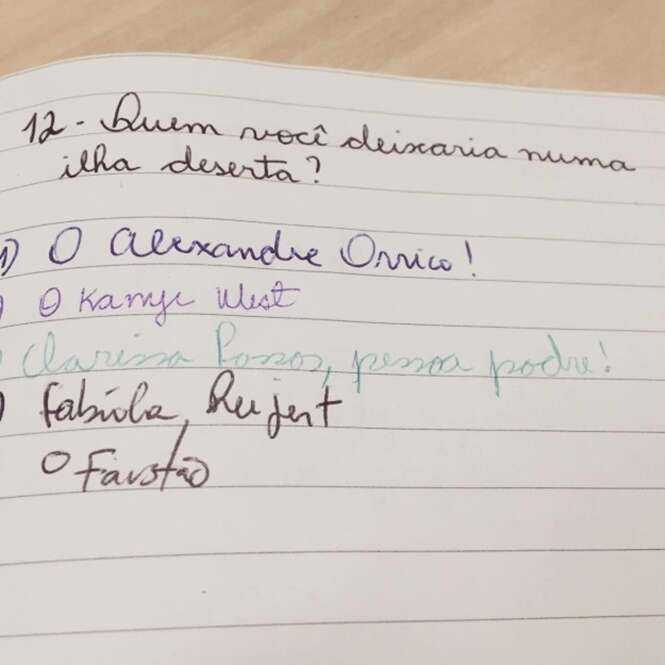 12- Quem você deixaria numa
ilha deserta?
1) O Alexandre Orrico!
) O Kanye West
) Clarissa Passos, pessoa podre!
) Fabíola Reijent
O Faustão